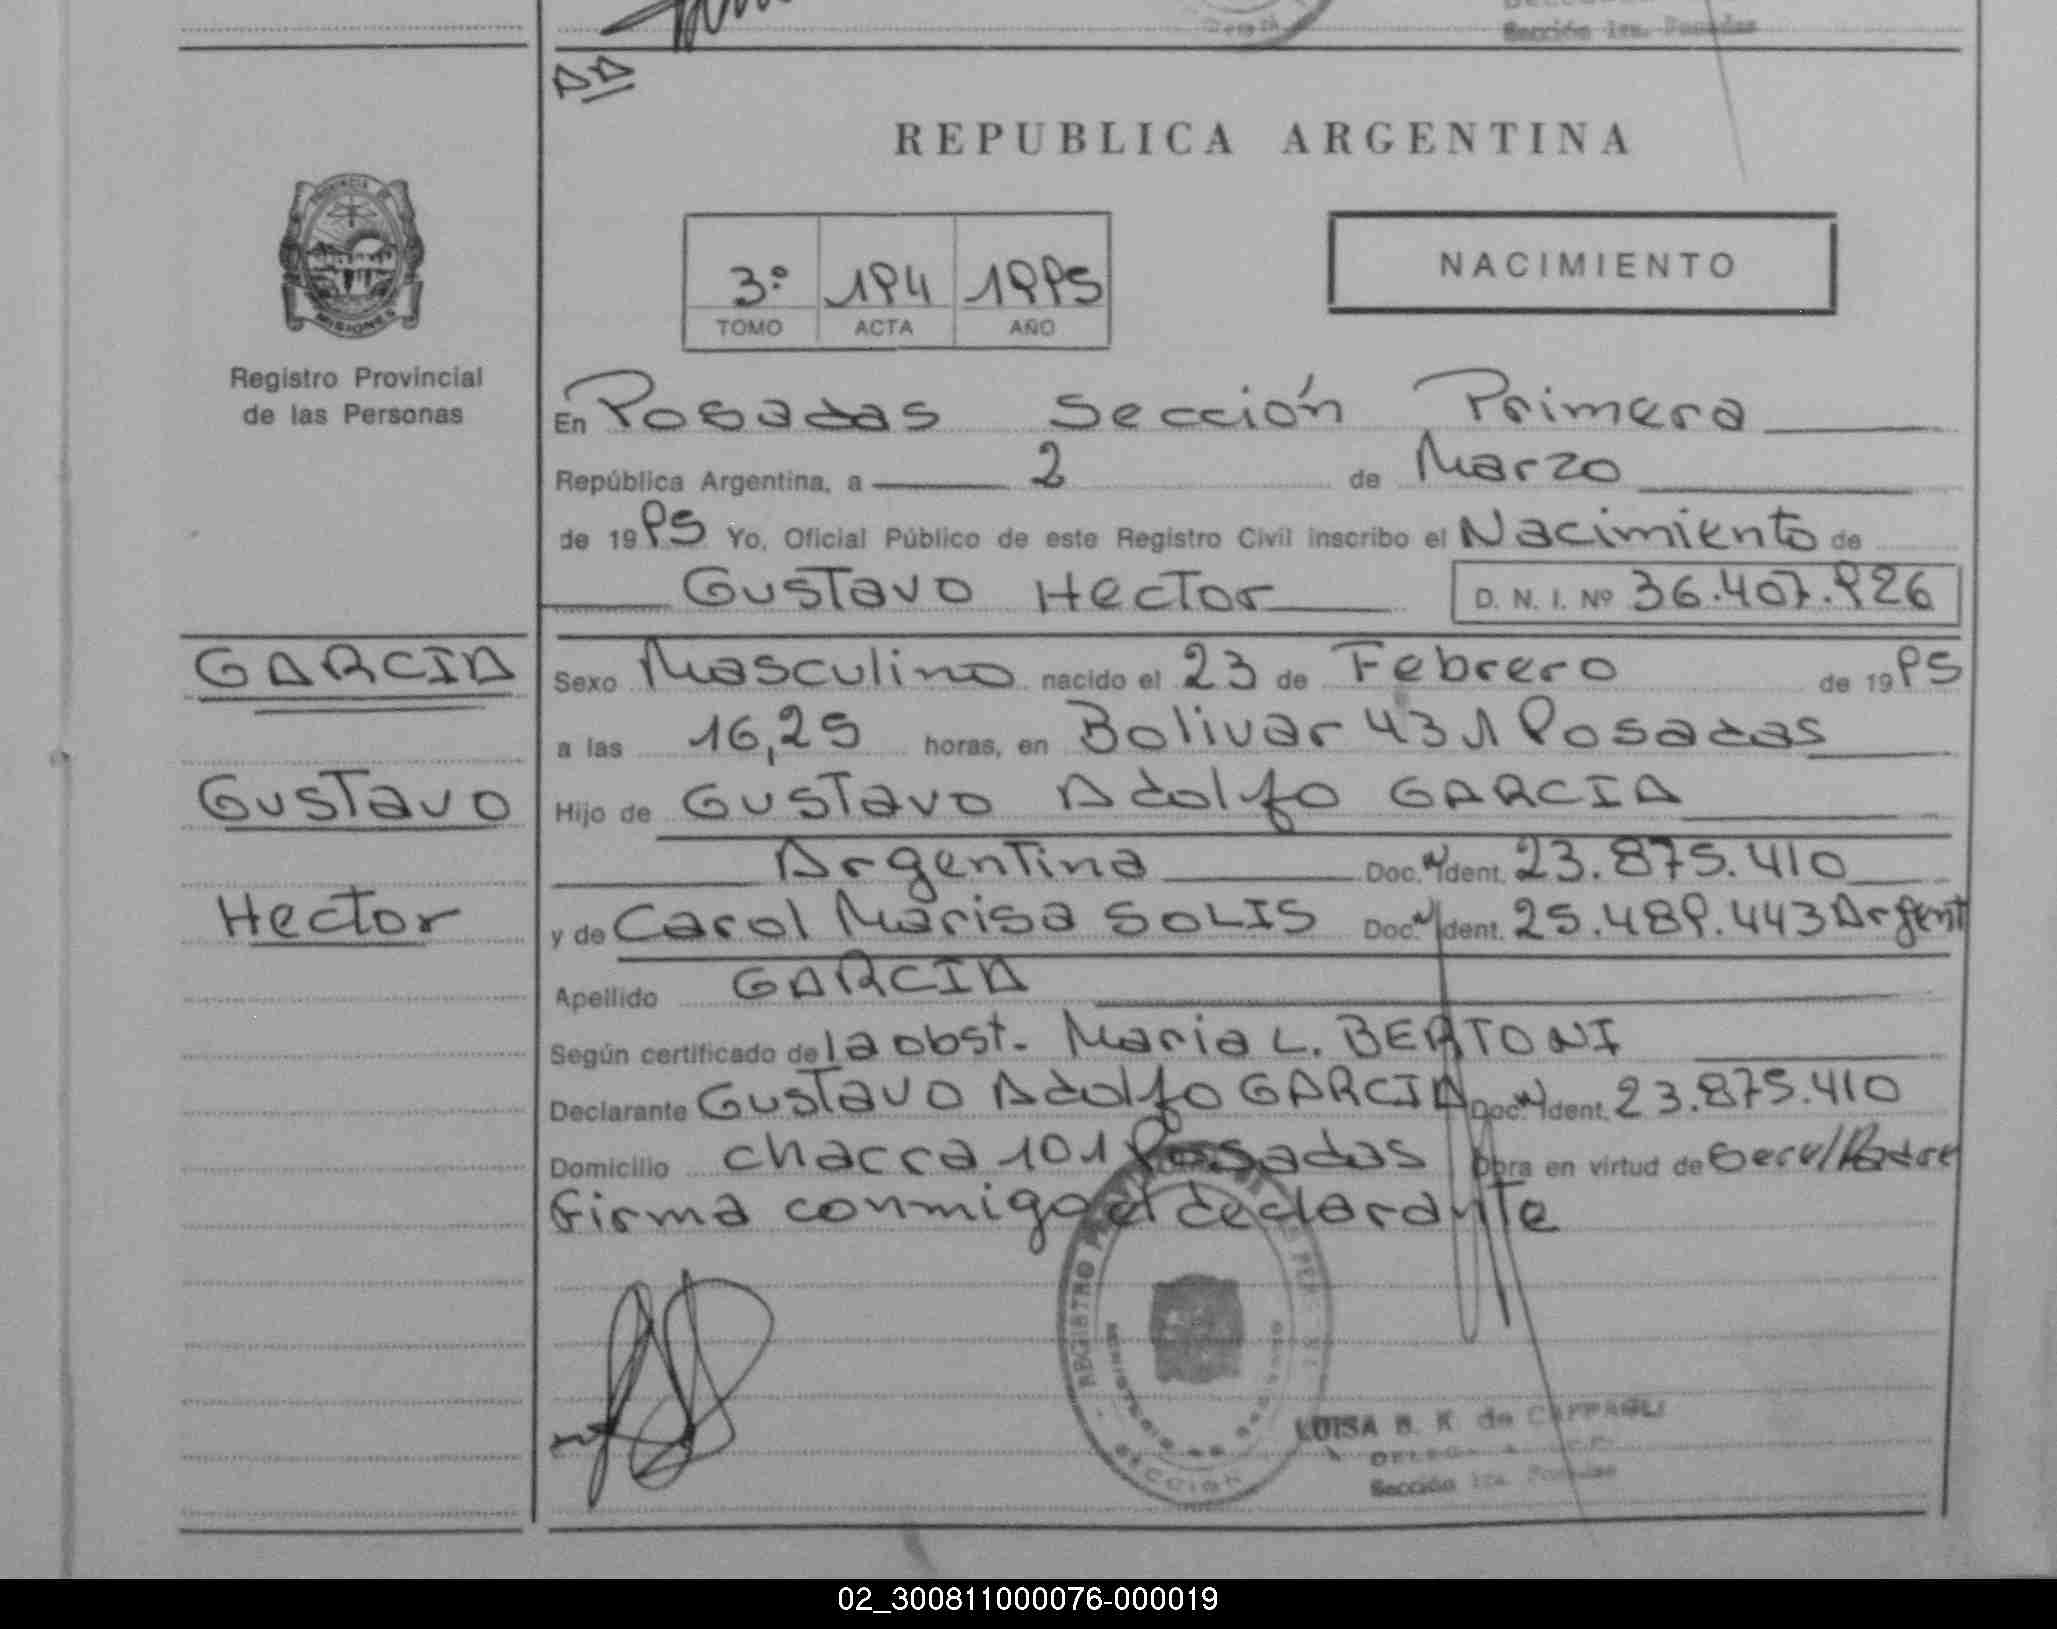 Sección 1ra. Posadas
AA
REPUBLICA ARGENTINA
PROVINCIA DE
MISIONES
3º 194 1995
TOMO ACTA AÑO
NACIMIENTO
Registro Provincial
de las Personas
En Posadas Sección Primera
República Argentina, a 2 de Marzo
de 1995 Yo, Oficial Público de este Registro Civil inscribo el Nacimiento de
Gustavo Hector D. N. I. Nº 36.407.926
GARCIA
Sexo Masculino nacido el 23 de Febrero de 1995
a las 16,25 horas, en Bolivar 431 Posadas
Gustavo
Hijo de Gustavo Adolfo GARCIA
Argentina Doc. Ident. 23.875.410
Hector
y de Carol Marisa SOLIS Doc. Ident. 25.489.443 Argent
Apellido GARCIA
Según certificado de la obst. Maria L. BERTONI
Declarante Gustavo Adolfo GARCIA Doc. Ident. 23.875.410
Domicilio chacra 101 Posadas Obra en virtud de ser el Padre
Firma conmigo el declarante
REGISTRO
SECCION
LUISA B. K de CAPPAGLI
Sección 1ra. Posadas
02_300811000076-000019